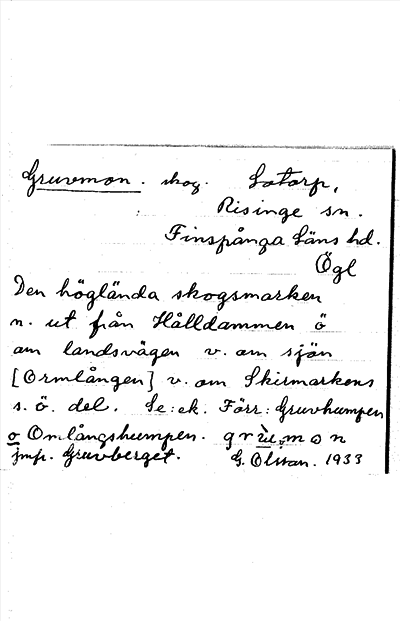 Gruvmon. skog. Lotorp,
Risinge sn.
Finspånga Läns hd.
Ögl
Den höglända skogsmarken
n. ut från Hålldammen ö
om landsvägen v. om sjön
[Ormlången] v. om Skirmarkens
s. ö. del. Se: ek. Förr: Gruvhumpen
o Ormlångshumpen. grùmon
jmf. Gruvberget. G. Olsson. 1933